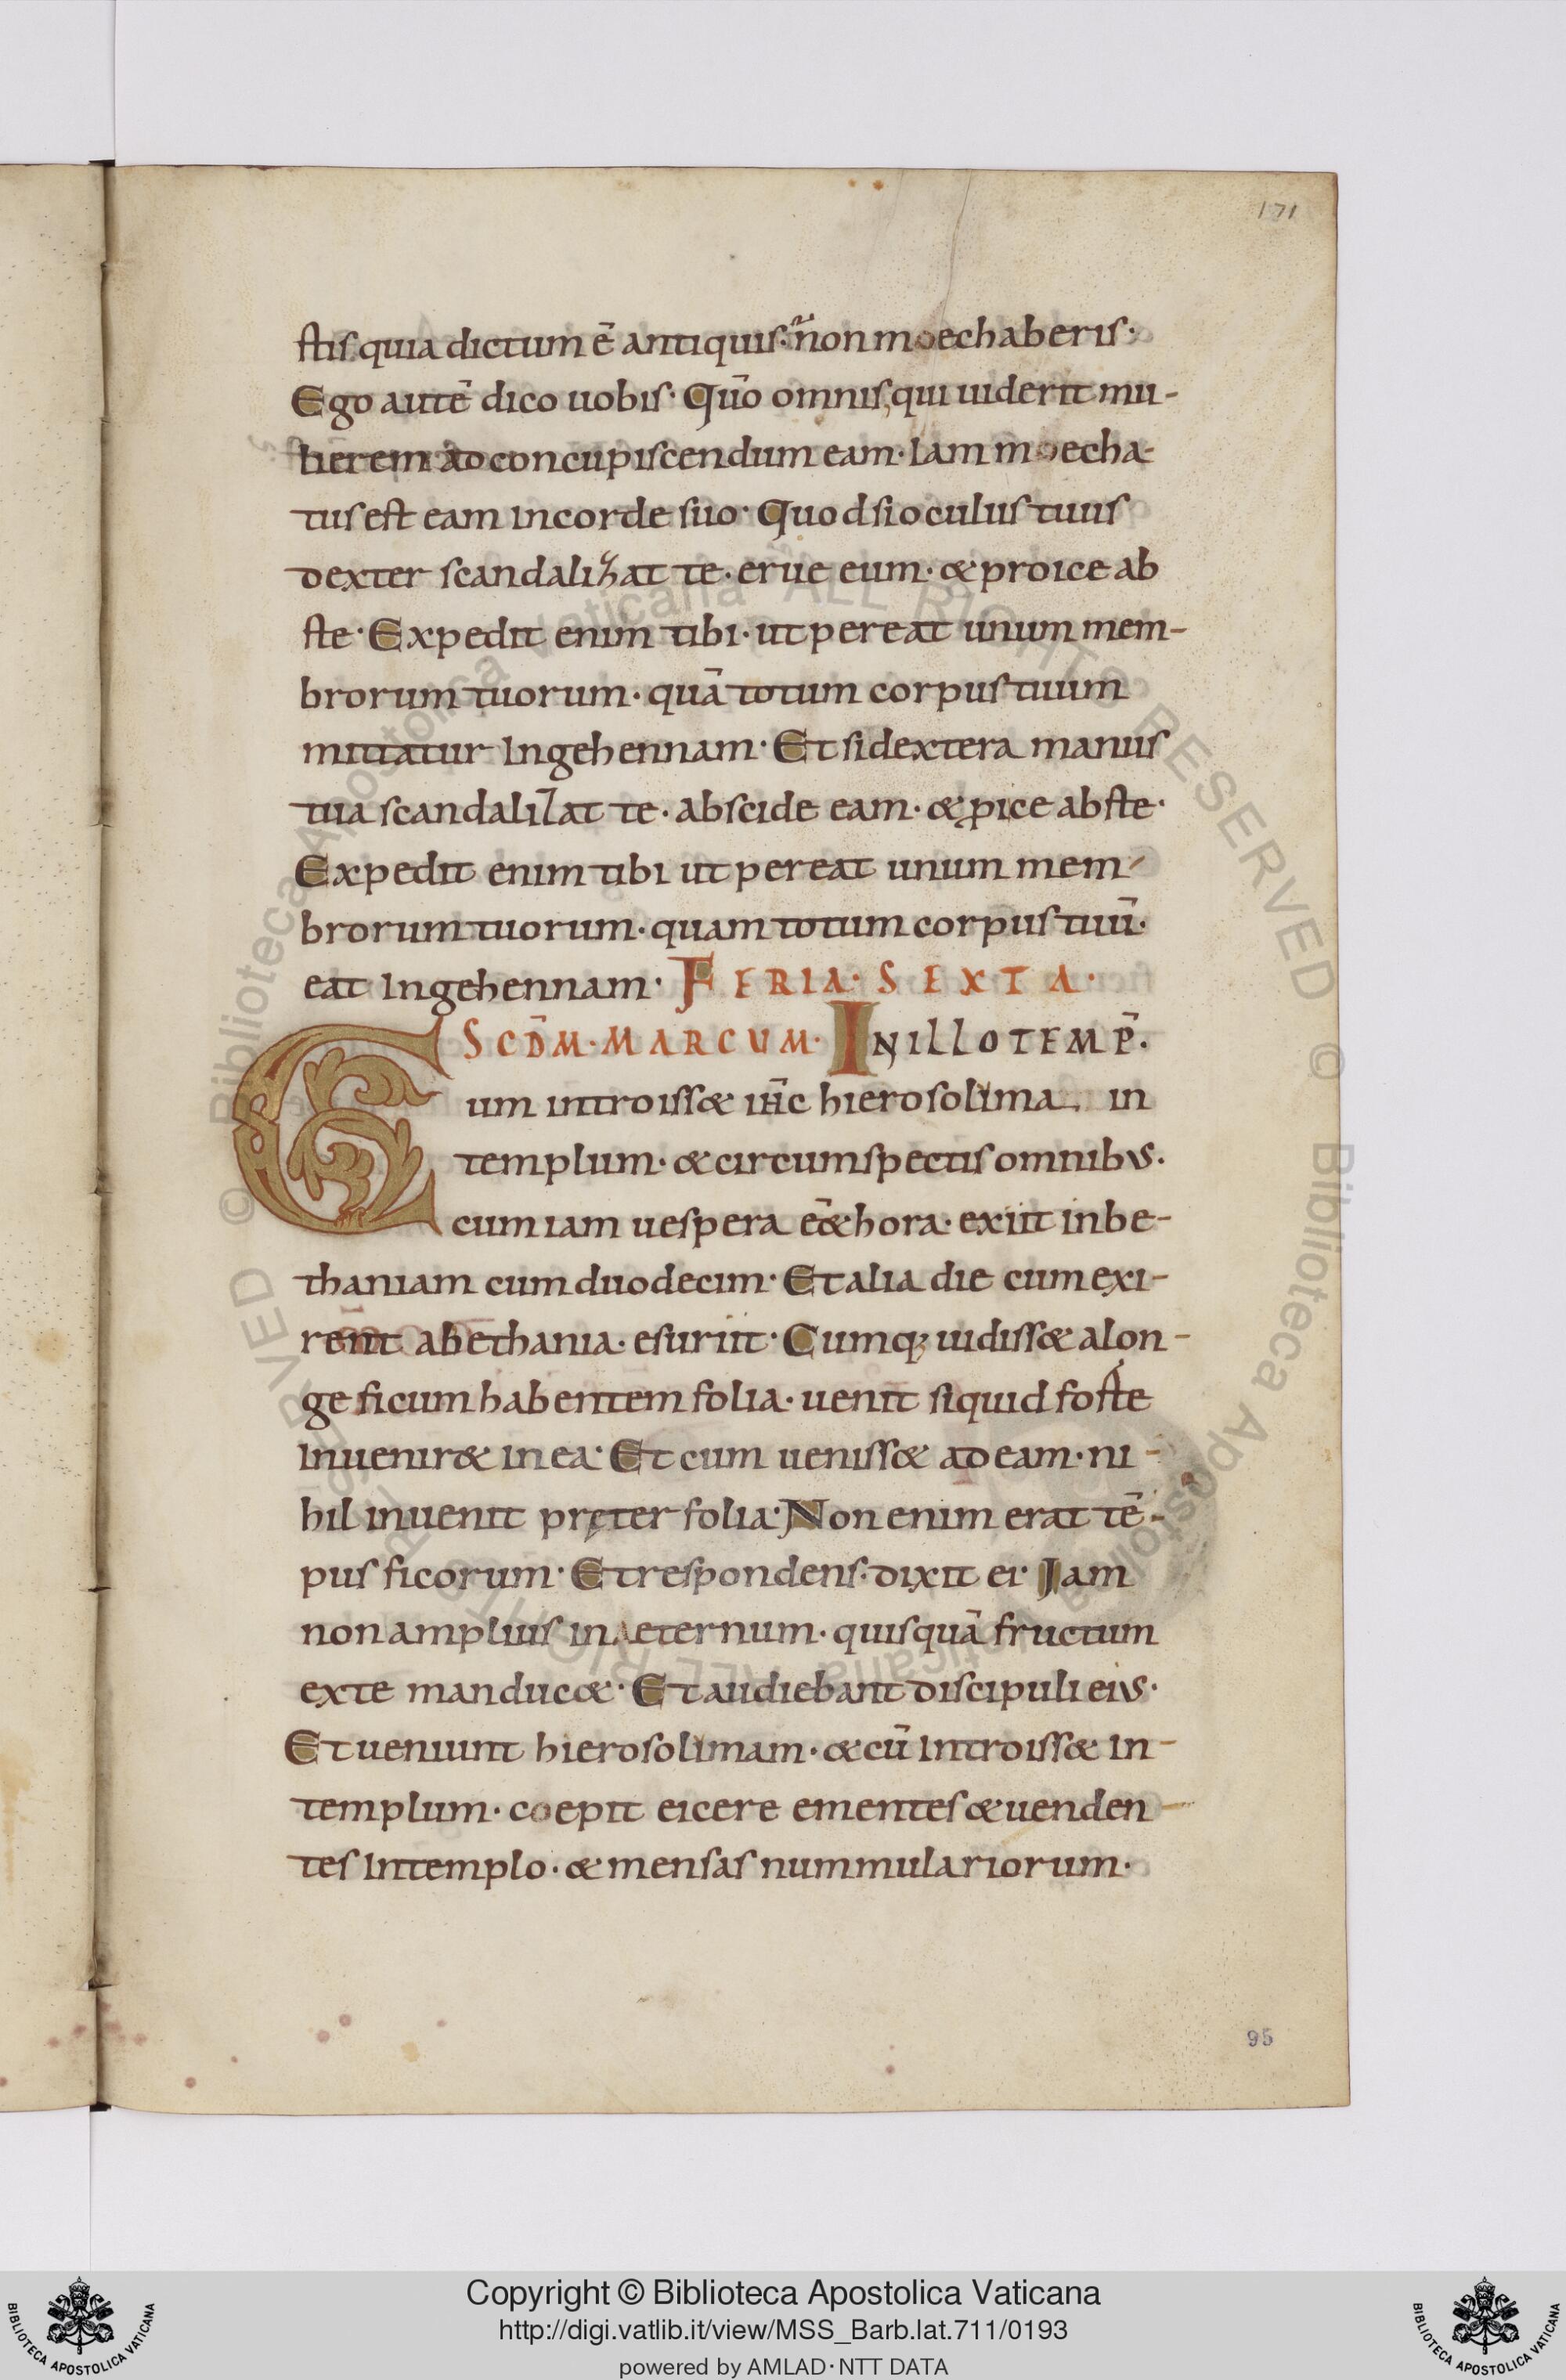 171
stis quia dictum ē antiquis· ñ non moechaberis·
Ego autē dico uobis· Qūo omnis qui uiderit mu-
lierem ad concupiscendum eam· Iam moecha-
tus est eam in corde suo· Quod si oculus tuus
dexter scandalizat te· erue eum· & proice abs
te· Expedit enim tibi· ut pereat unum mem-
brorum tuorum· quā totum corpus tuum
mittatur in gehennam· Et si dextera manus
tua scandalizat te· abscide eam· & ꝓice abs te·
Expedit enim tibi ut pereat unum mem-
brorum tuorum· quam totum corpus tuū·
eat in gehennam· FERIA· SEXTA·
SCDM̄· MARCUM· IN ILLO TEMP̄·
Cum introiss& ihc̄ hierosolima in
templum· & circumspectis omnibus·
cum iam uespera eēt hora· exiit in be-
thaniam cum duodecim· Et alia die cum exi-
rent a bethania· esuriit· Cumq; uidiss& a lon-
ge ficum habentem folia· uenit si quid forte
inuenir& in ea· Et cum ueniss& ad eam· ni-
hil inuenit pręter folia· Non enim erat tē-
pus ficorum· Et respondens· dixit ei· Iam
non amplius in aeternum· quisquā fructum
ex te manduc&· Et audiebant discipuli eius·
Et ueniunt hierosolimam· & cū introiss& in-
templum· coepit eicere ementes & uenden-
tes in templo· & mensas nummulariorum·
95
Copyright © Biblioteca Apostolica Vaticana
http://digi.vatlib.it/view/MSS_Barb.lat.711/0193
powered by AMLAD·NTT DATA
BIBLIOTECA APOSTOLICA VATICANA
BIBLIOTECA APOSTOLICA VATICANA
© Biblioteca Apostolica Vaticana ALL RIGHTS RESERVED © Biblioteca Apostolica Vaticana ALL RIGHTS RESERVED